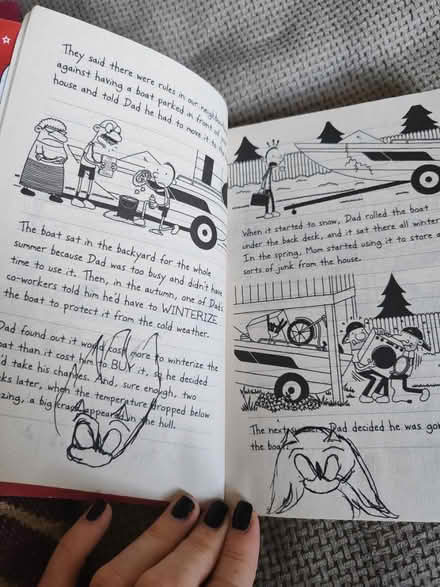 They said there were rules in our neighbou
against having a boat parked in front of
house and told Dad he had to move it
The boat sat in the backyard for the whole
summer because Dad was too busy and didn't have
time to use it. Then, in the autumn, one of Dad's
co-workers told him he'd have to WINTERIZE
the boat to protect it from the cold weather.
Dad found out it would cost more to winterize the
boat than it cost him to BUY it, so he decided
he'd take his chances. And, sure enough, two
weeks later, when the temperature dropped below
zing, a big crack appeared in the hull.
When it started to snow, Dad rolled the boat
under the back deck, and it sat there all winter
In the spring, Mom started using it to store a
sorts of junk from the house.
The next Dad decided he was go
the boat